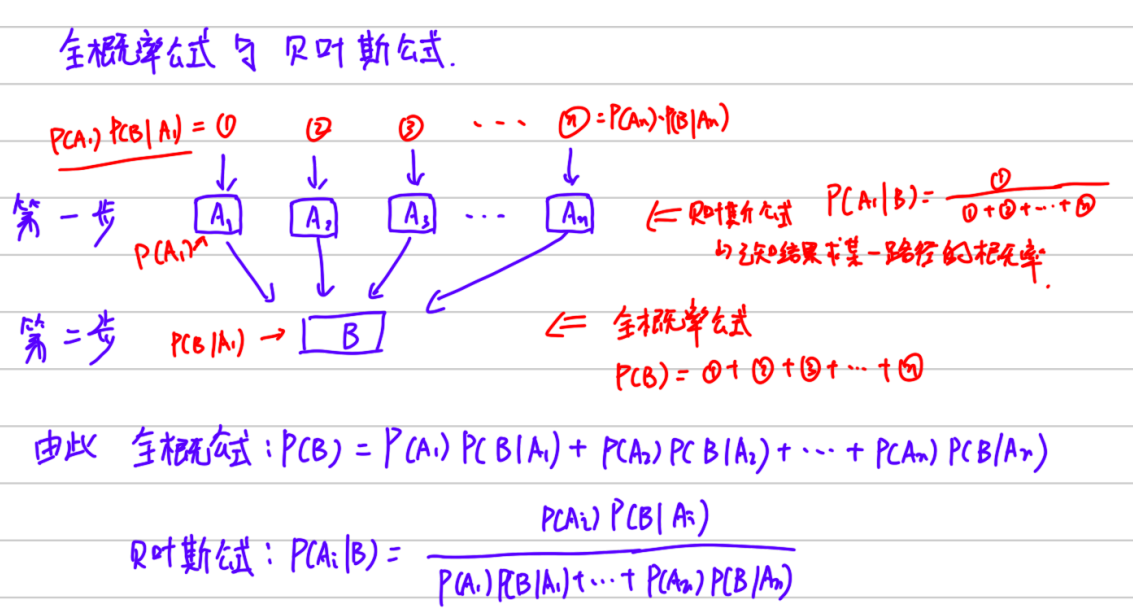 全概率公式与贝叶斯公式.
P(A₁)P(B|A₁)=① ② ③ ··· ⓝ=P(Aₙ)·P(B|Aₙ)
第一步 A₁ A₂ A₃ ··· Aₙ ⇐ 贝叶斯公式 P(A₁|B)=①/(①+②+···+ⓝ)
P(A₁) 的已知结果求某一路径的概率.
第二步 P(B|A₁)→ B ⇐ 全概率公式
P(B)=①+②+③+···+ⓝ
由此 全概公式:P(B)=P(A₁)P(B|A₁)+P(A₂)P(B|A₂)+···+P(Aₙ)P(B|Aₙ)
贝叶斯公式:P(Aᵢ|B)=P(Aᵢ)P(B|Aᵢ)/(P(A₁)P(B|A₁)+···+P(Aₙ)P(B|Aₙ))